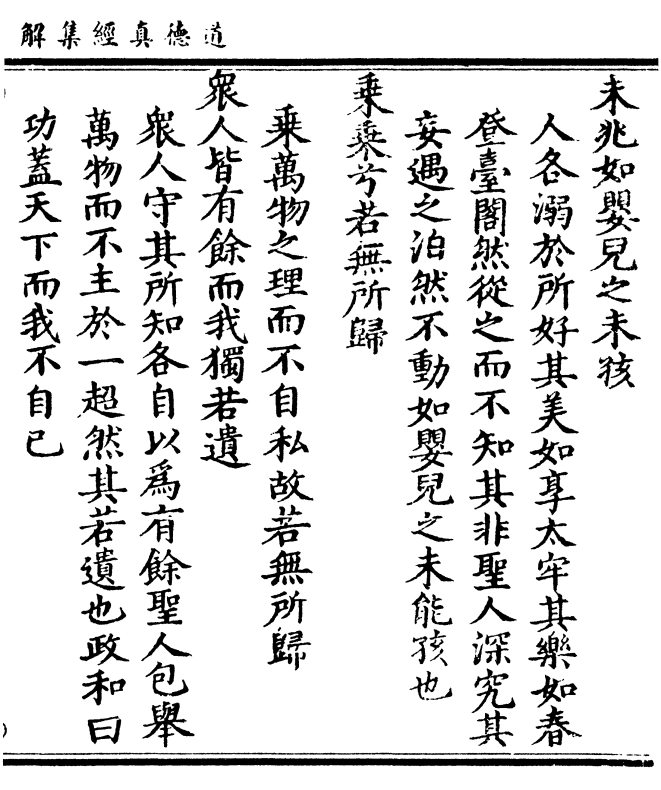 道德真經集解
未兆如嬰兒之未孩
人各溺於所好其美如享太牢其樂如春
登臺閣然從之而不知其非聖人深究其
妄遇之泊然不動如嬰兒之未能孩也
乘乘兮若無所歸
乘萬物之理而不自私故若無所歸
衆人皆有餘而我獨若遺
衆人守其所知各自以爲有餘聖人包舉
萬物而不主於一超然其若遺也政和曰
功蓋天下而我不自已